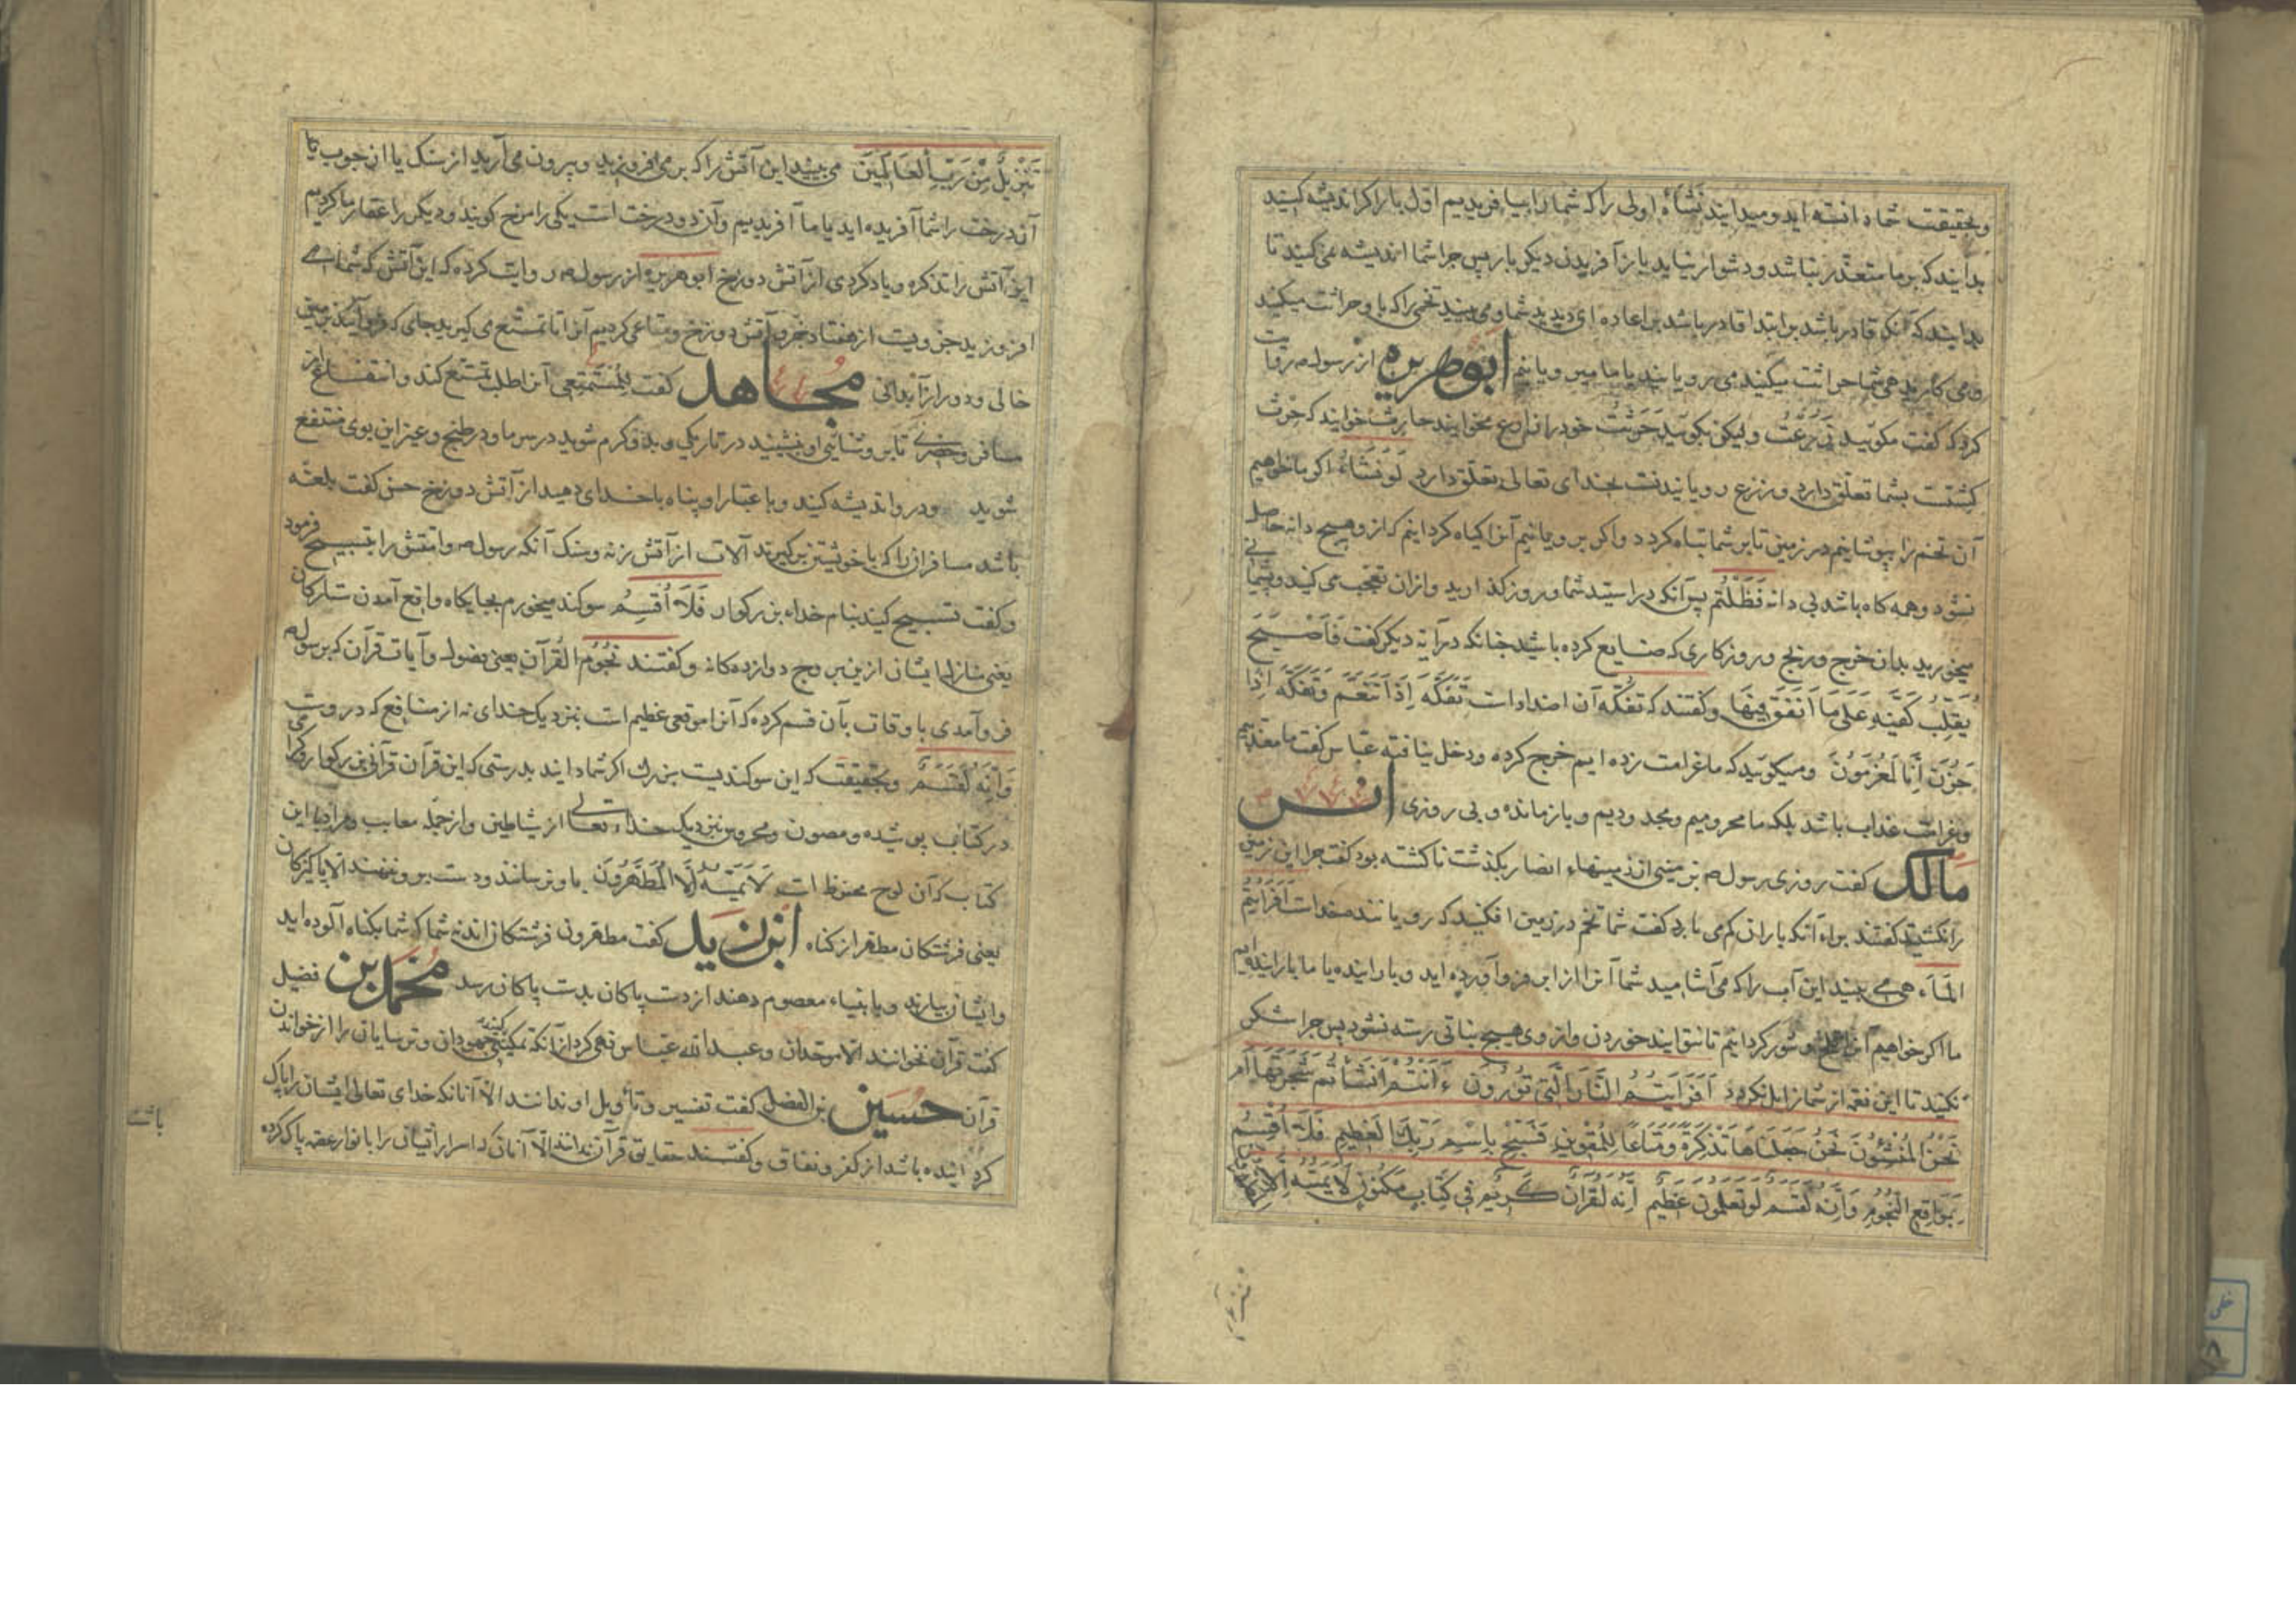 وبحقیقت شما دانسته اید ومیدانید نشأهٔ اولی را که شما را بیافریدیم اول بار اکر اندیشه کنید
بدانید که بر ما متعذر نباشد ودشوار نیاید باز آفریدن دیکر بار پس چرا شما اندیشه نمی کنید تا
بدانید که آنکه قادر باشد بر ابتدا قادر باشد بر اعاده ای دیدید شما ومی بینید تخمی را که باو حراثت میکنید
ومی کارید هی شما حراثت میکنید می رویانید یا ما میرویانیم ابوهریره از رسول ص روایت
کرد که کفت مکوئید زَرَعْتُ ولیکن بکوئید حَرَثْتُ خود را زارع مخوانید حارث خوانید که حرث
کشتنست بشما تعلق دارد وزرع رویانیدنست بخدای تعالی تعلق دارد لَوْ نَشَاءُ اکر ما خواهیم
آن تخم را بپوشانیم در زمین تا بر شما تباه کردد واکر برویانیم آنرا کیاه کردانیم که از وهیچ دانه حاصل
نشود وهمه کاه باشد بی دانه فَظَلْتُم پس آنکه در ایستید شما وروز کذارید وازان تعجب می کنید وپشیمانی
میخورید بدان خرج ورنج وروزکاری که ضایع کرده باشید چنانکه در آیه دیکر کفت فَأَصْبَحَ
یُقَلِّبُ کَفَّیْهِ عَلَی مَا أَنْفَقَ فِیهَا وکفتند که تفکّه آن اضدادات تَفَکَّهَ إِذَا تَنَعَّمَ وَتَفَکَّهَ إِذَا
حَزِنَ إِنَّا لَمُغْرَمُونَ ومیکوئید که ما غرامت زده ایم خرج کرده ودخل نیافته عباس کفت ما معذبیم
وغرامت عذاب باشد بلکه ما محرومیم ومجدودیم وبازمانده وبی روزی انس
مالک کفت روزی رسول ص بزمینی از زمینهاء انصار بکذشت ناکشته بود کفت چرا این زمین
را نکشتید کفتند براء آنکه باران کم می بارد کفت شما تخم در زمین افکنید که رویاننده خداست أَفَرَأَیْتُمُ
الْمَاءَ هی می بینید این آب را که می آشامید شما آنرا از ابر فرو آورده اید وبارانیده یا ما بارانیده ایم
ما اکر خواهیم آنرا تلخ وشور کردانیم تا نتوانید خوردن واز وی هیچ نباتی رسته نشود پس چرا شکر
نکنید تا این نعمه از شما زایل نکردد أَفَرَأَیْتُمُ النَّارَ الَّتِی تُورُونَ ءَأَنْتُمْ أَنْشَأْتُمْ شَجَرَتَهَا أَمْ
نَحْنُ الْمُنْشِئُونَ نَحْنُ جَعَلْنَاهَا تَذْکِرَةً وَمَتَاعًا لِلْمُقْوِینَ فَسَبِّحْ بِاسْمِ رَبِّکَ الْعَظِیمِ فَلَا أُقْسِمُ
بِمَوَاقِعِ النُّجُومِ وَإِنَّهُ لَقَسَمٌ لَوْ تَعْلَمُونَ عَظِیمٌ إِنَّهُ لَقُرْآنٌ کَرِیمٌ فِی کِتَابٍ مَکْنُونٍ لَا یَمَسُّهُ إِلَّا
تَنْزِیلٌ مِنْ رَبِّ الْعَالَمِینَ می بینید این آتش را که بر می افروزید وبیرون می آرید از سنک یا از چوب یا
آن درخت را شما آفریده اید یا ما آفریدیم وآن دو درخت است یکی را مرخ کویند ودیکر را عفار ما کردیم
این آتش را تذکره ویاد کردی از آتش دوزخ ابو هریره از رسول ص روایت کرده که این آتش که شما می
افروزید جزویست از هفتاد جزو آتش دوزخ ومتاعی کردیم آنرا تا تمتع می کیرید جای که فرو آیند بزمین
خالی ودور از آبدانی مجاهد کفت للمستمتعی آنرا طلب تمتع کند وانتفاع از
مسافر وحضری تا بروشنائی او بنشینید در تاریکی وبدو کرم شوید در سرما ودر طبخ وغیر این بوی منتفع
شوید ودرو اندیشه کنید وباعتبار او پناه با خدای دهید از آتش دوزخ حسن کفت بلعتة
باشد مسافران را که با خویشتن بر کیرند آلات از آتش زنه وسنک آنکه رسول ص وامتش را بتسبیح فرمود
وکفت تسبیح کنید بنام خداء بزرکوار فَلَا أُقْسِمُ سوکند میخورم بجایکاه واقع آمدن ستارکان
یعنی منازل ایشان ازین بروج دوازده کانه وکفتند نجوم القرآن یعنی فصول وآیات قرآن که برسول ص
فرو آمدی باوقات بآن قسم کرده که آنرا موقعی عظیم است بنزدیک خدای نه از منافع که دروست
وَإِنَّهُ لَقَسَمٌ وبحقیقت که این سوکندیست بزرک اکر شما دانید بدرستی که این قرآن قرآنی بزرکوار
در کتاب پوشیده ومصون ومحروس بنزدیک خداء تعالی از شیاطین واز جملهٔ معایب ومراد با این
کتاب که آن لوح محفوظ است لَا یَمَسُّهُ إِلَّا الْمُطَهَّرُونَ باو نرسانند ودست برو ننهند الا پاکیزکان
یعنی فرشتکان مطهر از کناه ابن زید کفت مطهرون فرشتکان اند نه شما که شما بکناه آلوده اید
وایشان بیارند وبانبیاء معصوم دهند از دست پاکان بدست پاکان رسد محمد بن فضیل
کفت قرآن نخوانند الا موحدان وعبد الله عباس نهی کرد از آنکه تمکین کنند جهودان وترسایان را از خواندن
قرآن حسین بن الفضل کفت تفسیر وتأویل او ندانند الا آنانکه خدای تعالی ایشان را پاک
کردانیده باشد از کفر ونفاق وکفتند حقایق قرآن ندانند الا آنان که اسرار ایشان را بانوار عصمه پاک کرده
باشد